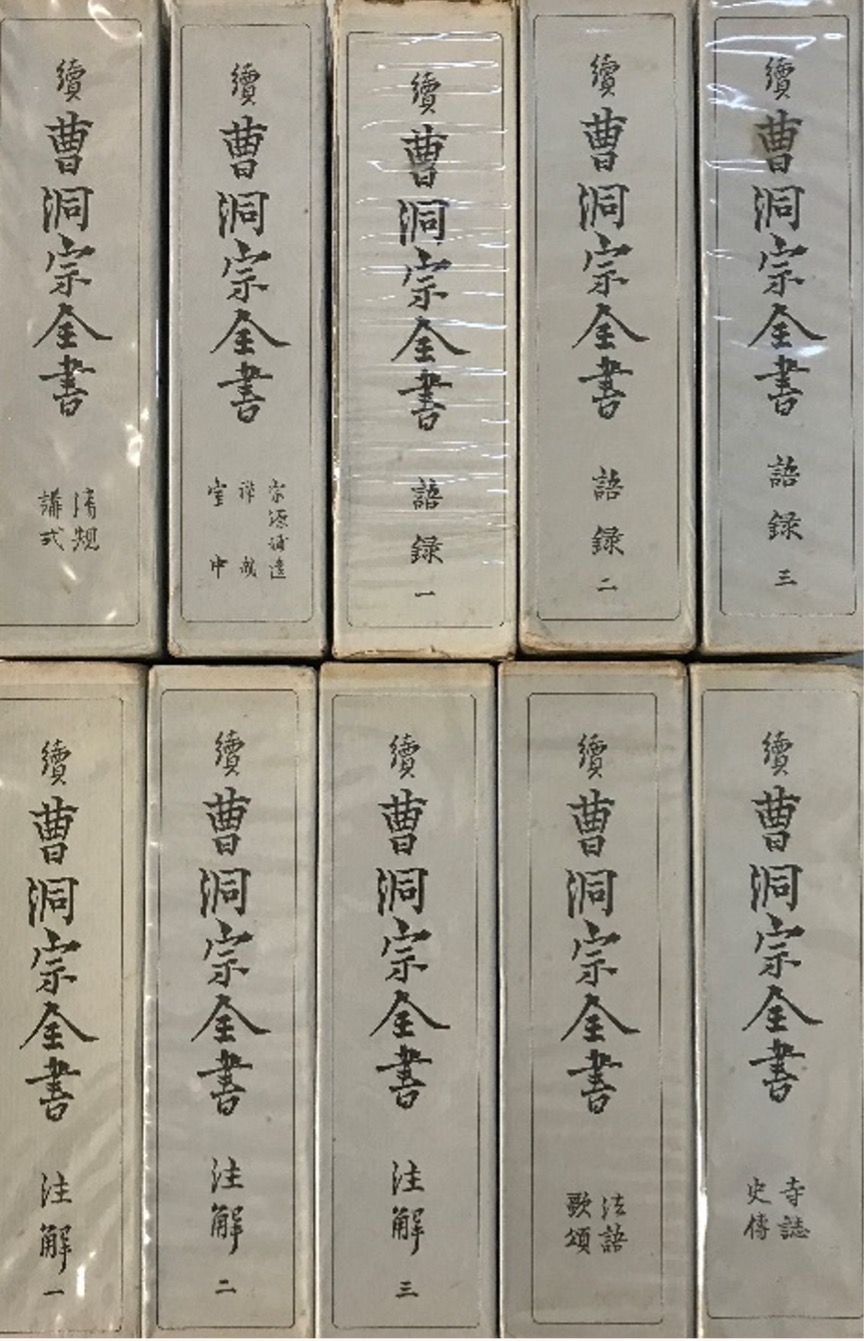 續
曹洞宗全書
清規
講式
續
曹洞宗全書
宗源補遺
禅戒
室中
續
曹洞宗全書
語録
一
續
曹洞宗全書
語録
二
續
曹洞宗全書
語録
三
續
曹洞宗全書
注解
一
續
曹洞宗全書
注解
二
續
曹洞宗全書
注解
三
續
曹洞宗全書
法語
歌頌
續
曹洞宗全書
寺誌
史傳